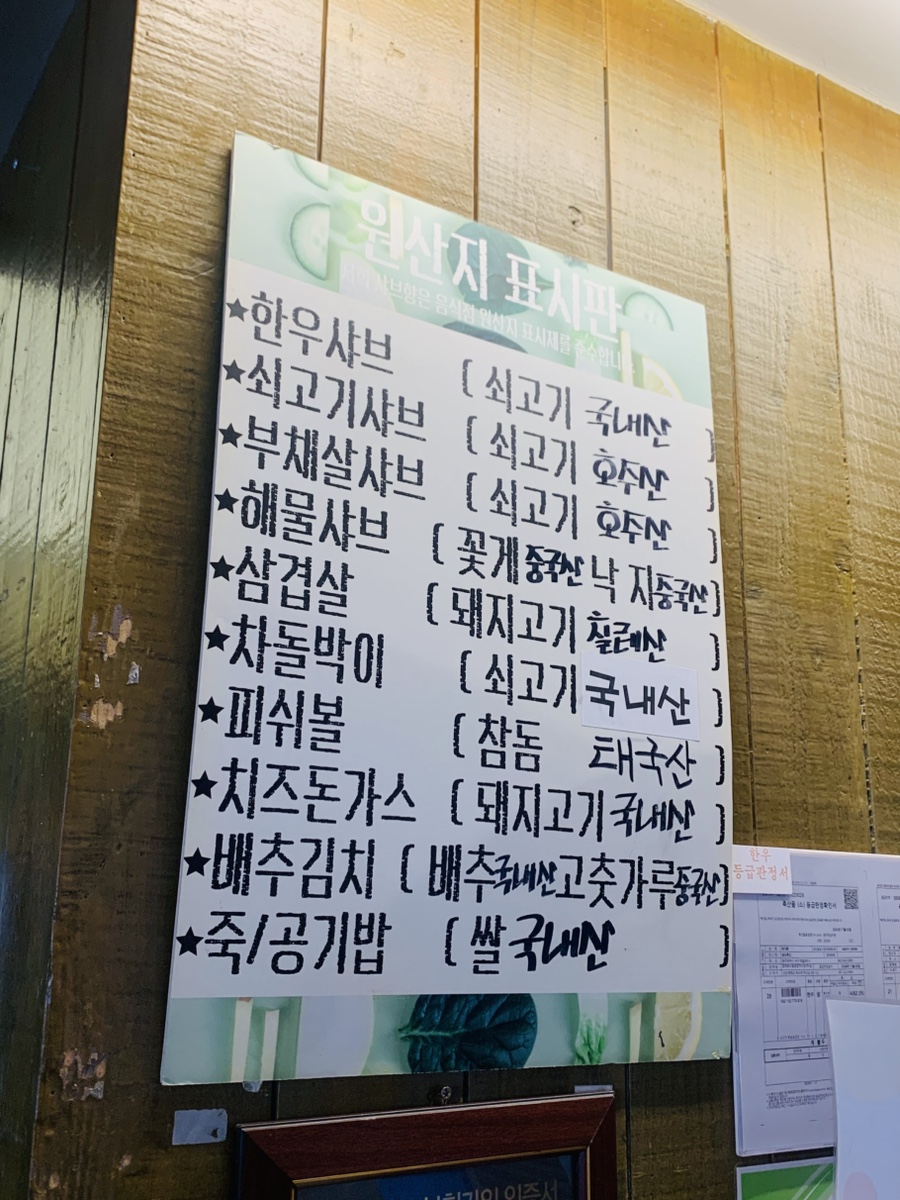 원산지 표시판
저희 샤브향은 음식점 원산지 표시제를 준수합니
★한우샤브 ( 쇠고기 국내산 )
★쇠고기샤브 ( 쇠고기 호주산 )
★부채살샤브 ( 쇠고기 호주산 )
★해물샤브 ( 꽃게 중국산 낙 지 중국산 )
★삼겹살 ( 돼지고기 칠레산 )
★차돌박이 ( 쇠고기 국내산 )
★피쉬볼 ( 참돔 태국산 )
★치즈돈가스 ( 돼지고기 국내산 )
★배추김치 ( 배추 국내산 고춧가루 중국산 )
★죽/공기밥 ( 쌀 국내산 )
한우
등급판정서